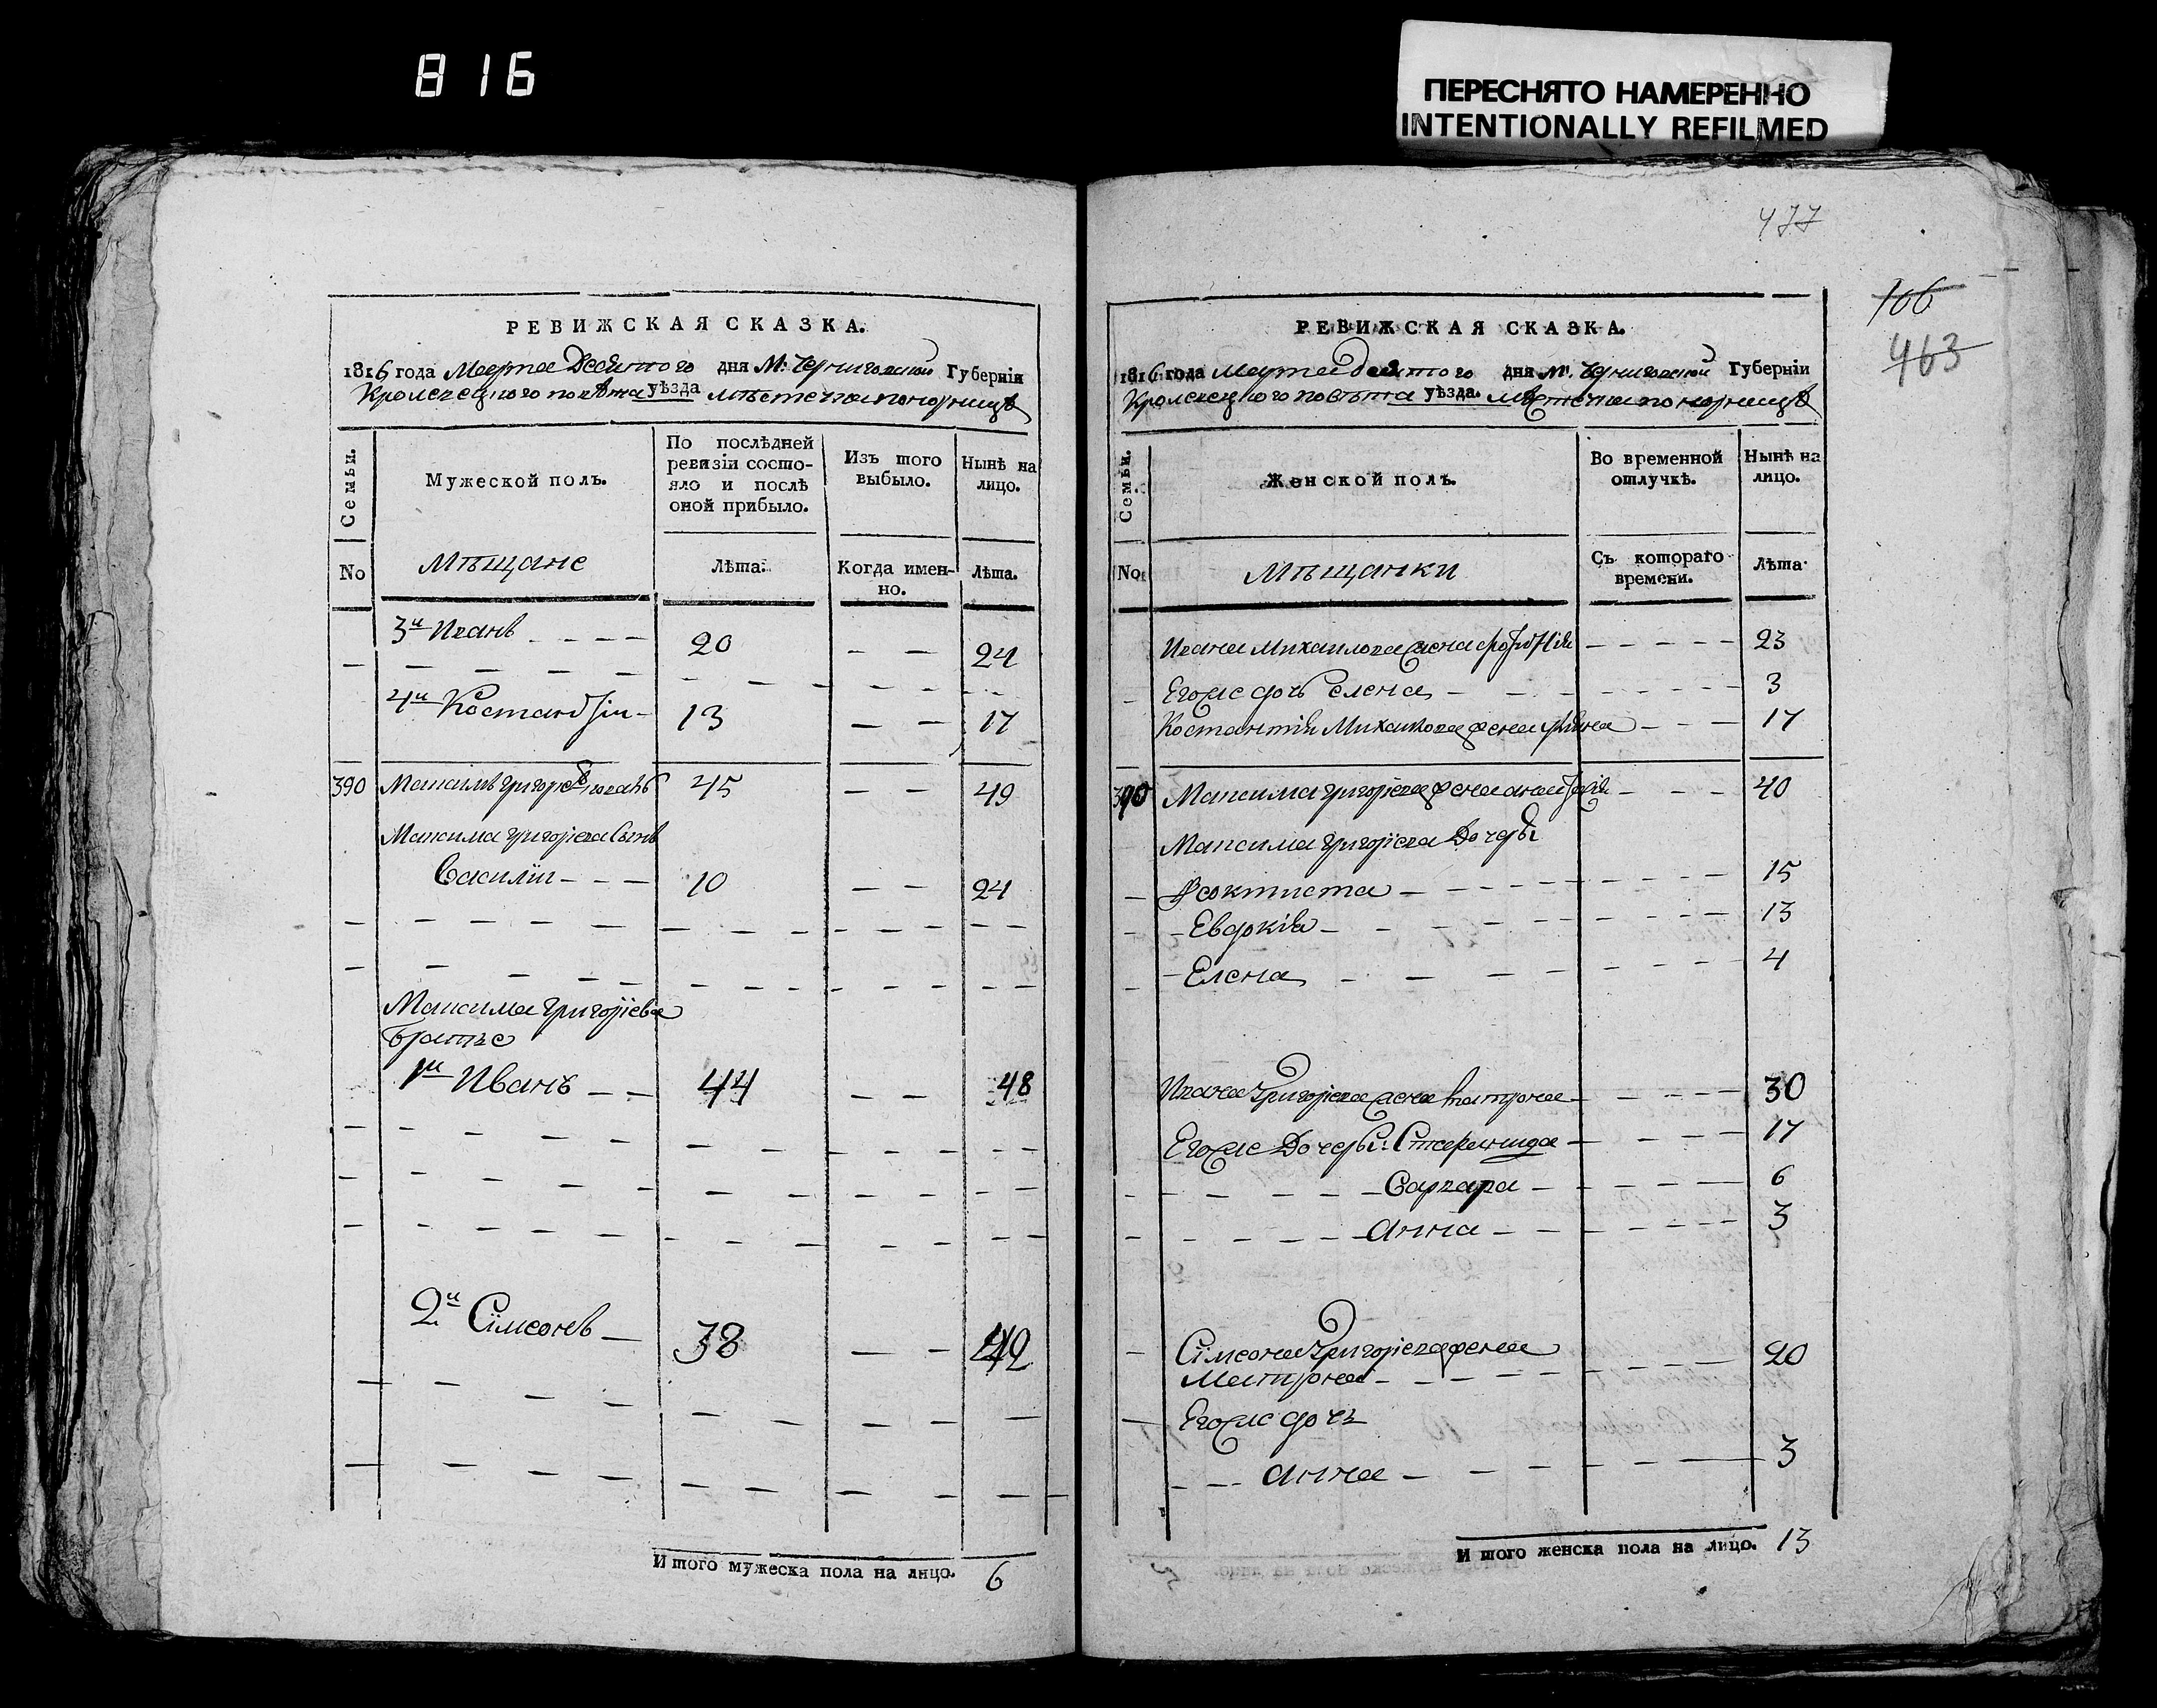 816
ПЕРЕСНЯТО НАМЕРЕННО
INTENTIONALLY REFILMED
РЕВИЖСКАЯ СКАЗКА.
1816 года Марта Десятого дня М: Черниговской Губерніи
Кролевецкого повѣта уѣзда мѣстечка понорницѣ
Семьи.
Мужеской полъ.
По послѣдней ревизіи состояло и послѣ оной прибыло.
Изъ того выбыло.
Нынѣ на лицо.
No
Мѣщане
Лѣта.
Когда именно.
Лѣта.
3й Иванъ 20 24
4й Костантiи 13 17
390 Максимъ григорiевъ 45 49
Максима григорiева Сынъ
Василiи 10 24
Максима григорiева
Братье
1й Иванъ 44 48
2й Сiмеонъ 38 42
И того мужеска пола на лицо. 6
477
106
463
РЕВИЖСКАЯ СКАЗКА.
1816 года Марта десятого дня М: Черниговской Губерніи
Кролевецкого повѣта уѣзда. мѣстечка понорницѣ
Семьи.
Женской полъ.
Во временной отлучкѣ.
Нынѣ на лицо.
No
Мѣщанки
Съ котораго времени.
Лѣта.
Ивана Михаилова жена 23
Егоже дочь Елена 3
Костантiя Михаилова жена 17
390 Максима григорiева жена 40
Максима григорiева Дочеры
Феоктиста 15
Евдокiя 13
Елена 4
Ивана григорiева жена катрона 30
Егоже Дочеры: Стефанида 17
Варвара 6
анна 3
Сiмеона григорiева жена
Матрона 20
Егоже дочь
анна 3
И того женска пола на лицо. 13